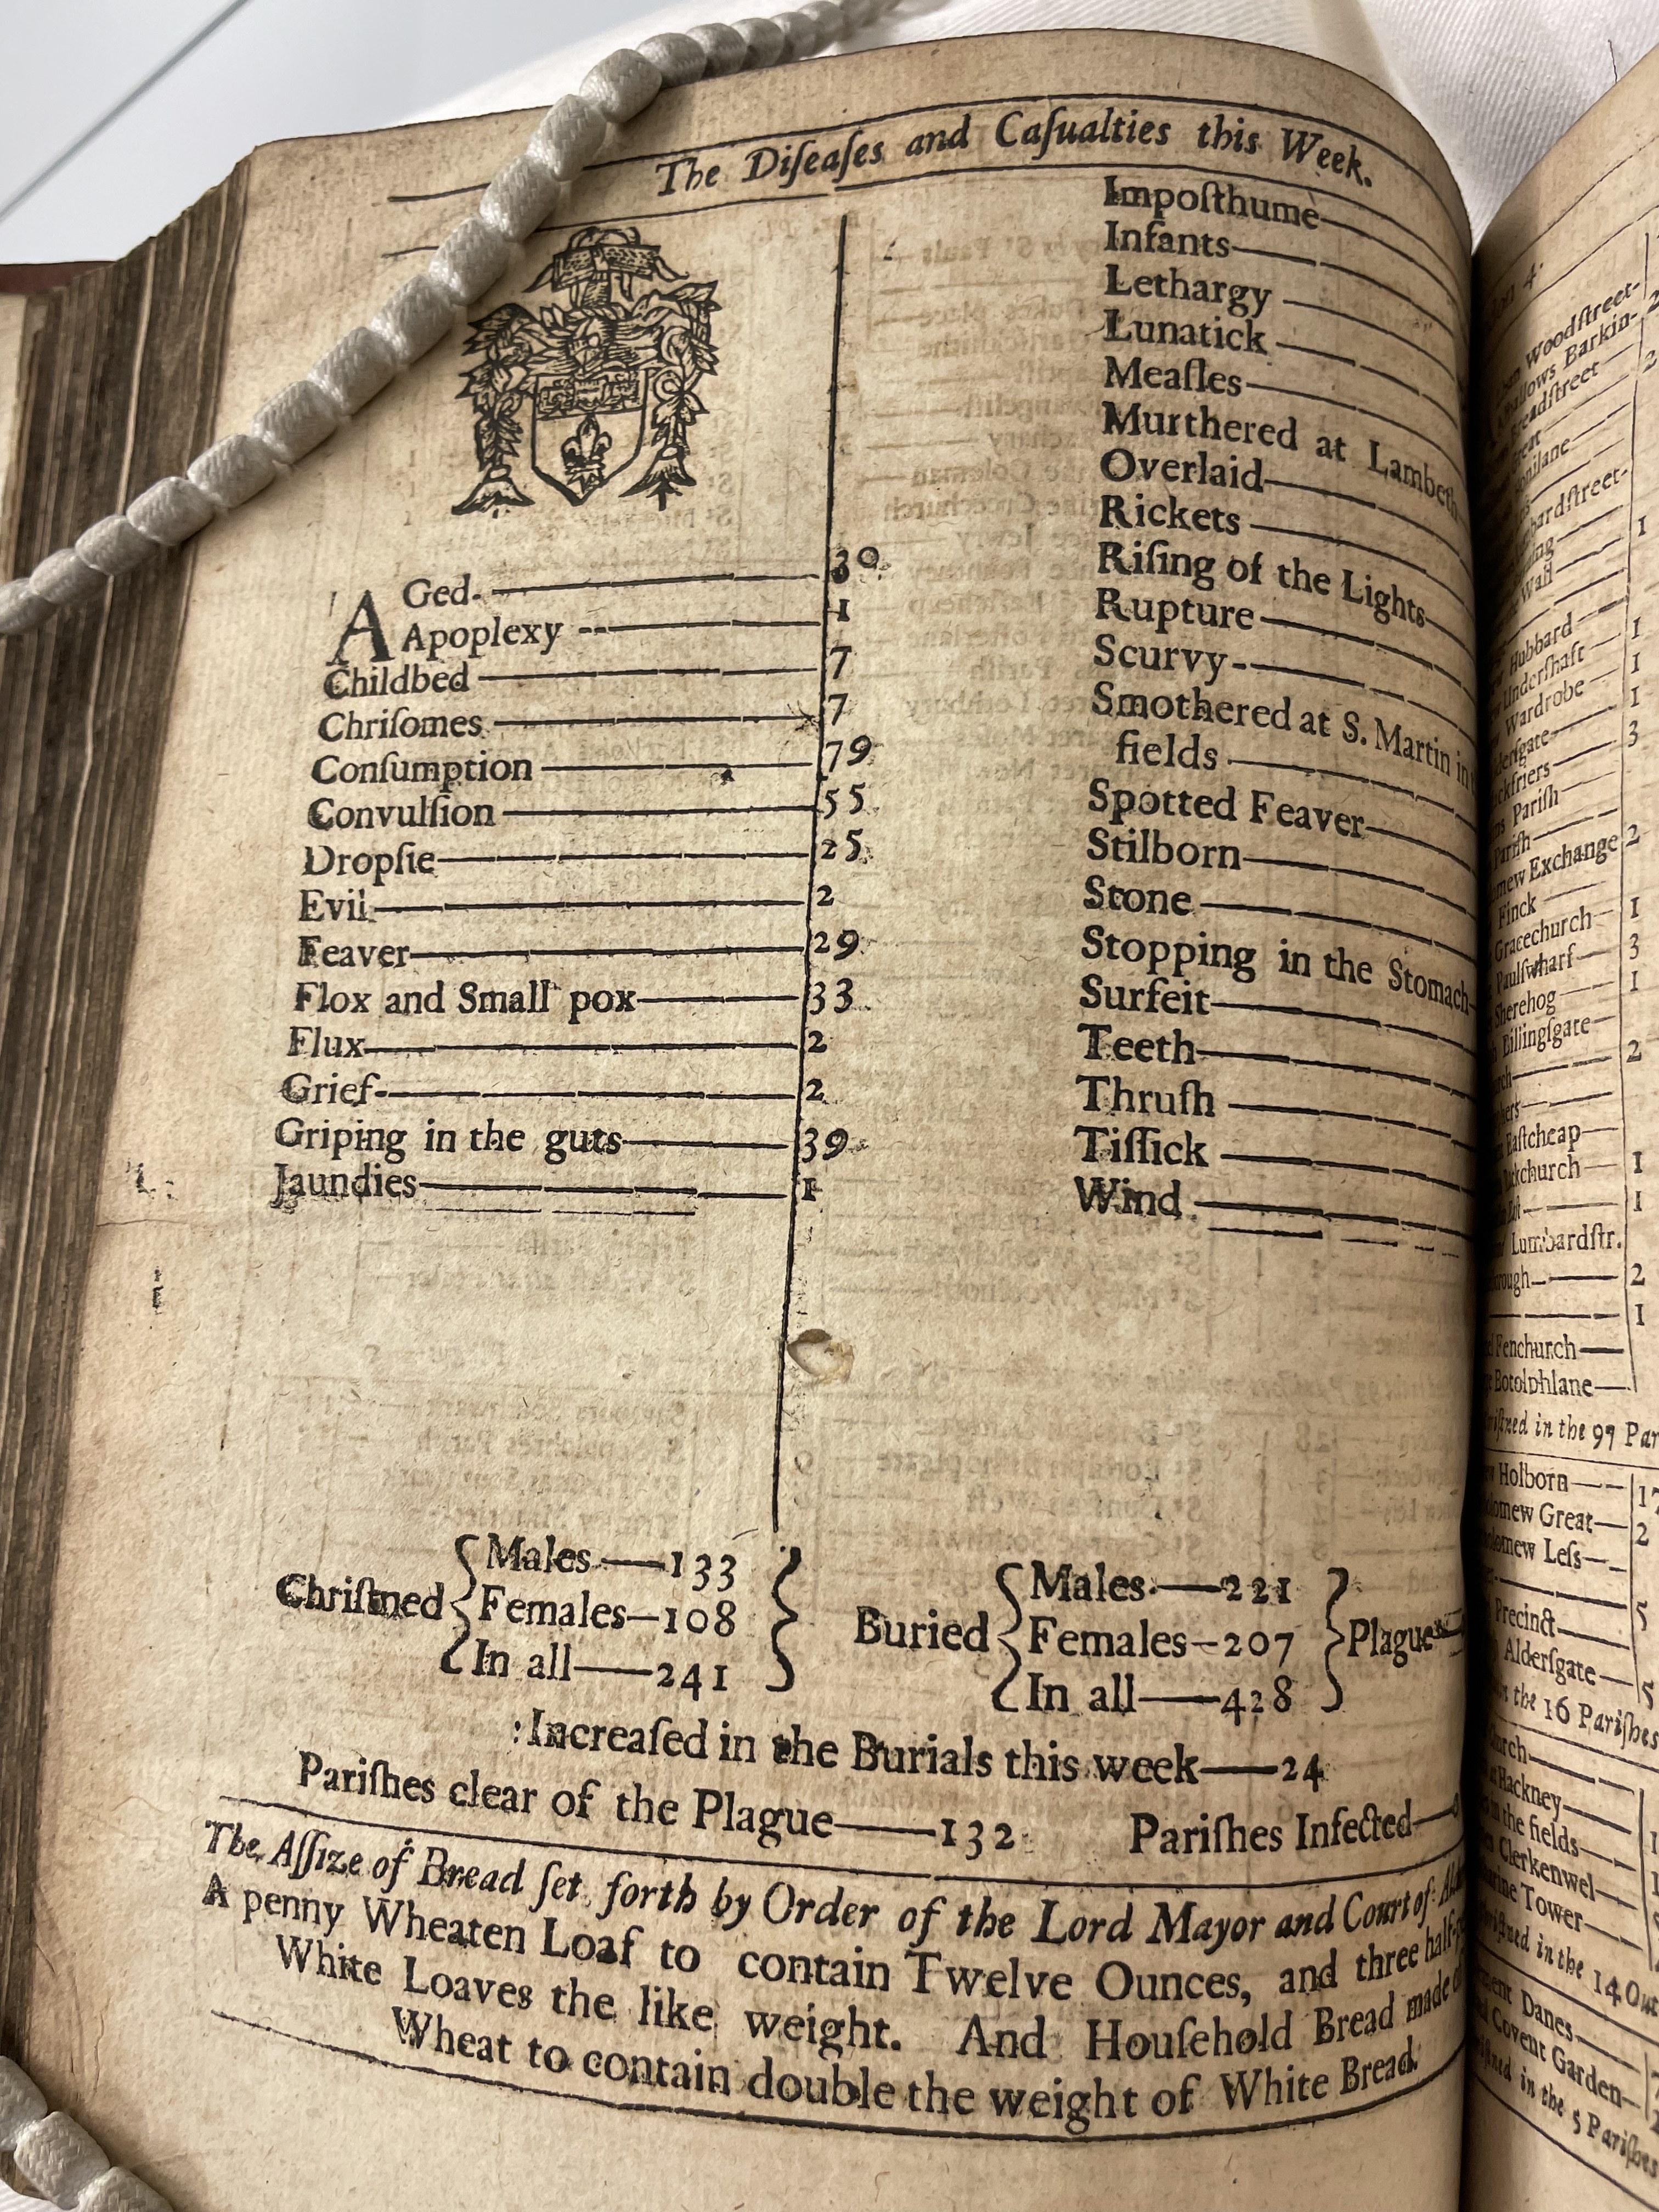 The Diſeaſes and Caſualties this Week.
AGed- 30
Apoplexy 1
Childbed 7
Chriſomes 7
Conſumption 79
Convulſion 55
Dropſie 25
Evil 2
Feaver 29
Flox and Small pox 33
Flux 2
Grief 2
Griping in the guts 39
Jaundies 1
Impoſthume
Infants
Lethargy
Lunatick
Meaſles
Murthered at Lambeth
Overlaid
Rickets
Riſing of the Lights
Rupture
Scurvy
Smothered at S. Martin in
fields
Spotted Feaver
Stilborn
Stone
Stopping in the Stomach
Surfeit
Teeth
Thruſh
Tiſſick
Wind
Chriſtned
Males—133
Females—108
In all—241
Buried
Males—221
Females—207
In all—428
Plague
Increaſed in the Burials this week—24
Pariſhes clear of the Plague—132 Pariſhes Infected—
The Aſſize of Bread ſet forth by Order of the Lord Mayor and Court of
A penny Wheaten Loaf to contain Twelve Ounces, and three half-
White Loaves the like weight. And Houſehold Bread made
Wheat to contain double the weight of White Bread.
Woodſtreet-
Barkin- 2
2
hardſtreet-
Wall 1
Hubbard
Underſhaft 1
Wardrobe 1
1
3
Pariſh
Pariſh
Exchange 2
Finck
Gracechurch 1
Paulſwharf 3
Sherehog 1
Billingſgate
2
Eaſtcheap
1
1
Lumbardſtr.
2
1
Fenchurch
Botolphlane
in the 97 Par
Holborn 17
Great 2
Leſs
Precinct 5
Alderſgate 5
the 16 Pariſhes
Hackney
the fields
Clerkenwel
Tower
in the 14 Out
Danes
Covent Garden
in the 5 Pariſhes